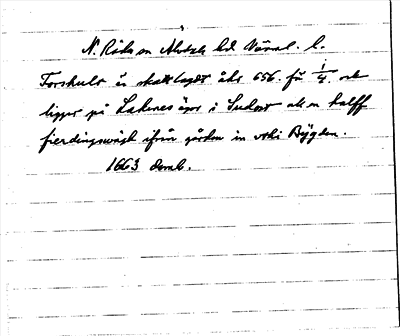 N. Råda sn Älvdals hd. Värml. l.
Torskult är skattlagdt åhr 656. för 1/4. och
ligger på Lakenes ägor i Sudost als en halff
fierdingswägh ifrån gården in vthi Bygden.
1663 Jordb.